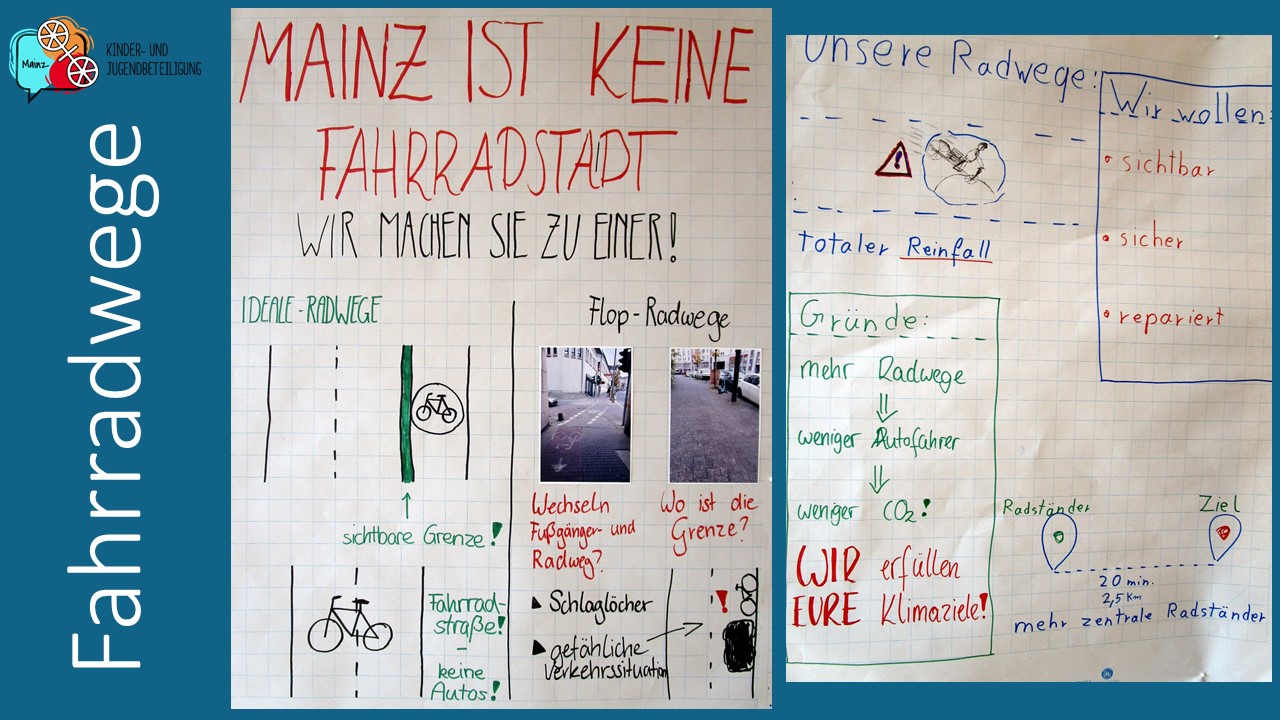 Mainz
KINDER- UND
JUGENDBETEILIGUNG
Fahrradwege
MAINZ IST KEINE
FAHRRADSTADT
WIR MACHEN SIE ZU EINER!
IDEALE-RADWEGE
sichtbare Grenze!
Fahrrad-
straße!
-
keine
Autos!
Flop-Radwege
Wechseln
Fußgänger- und
Radweg?
Wo ist die
Grenze?
Schlaglöcher
gefähliche
Verkehrssituation
!
Unsere Radwege:
!
totaler Reinfall
Wir wollen:
sichtbar
sicher
repariert
Gründe:
mehr Radwege
⇓
weniger Autofahrer
⇓
weniger CO2!
WIR erfüllen
EURE Klimaziele!
Radständer
Ziel
20 min.
2,5 Km
mehr zentrale Radständer